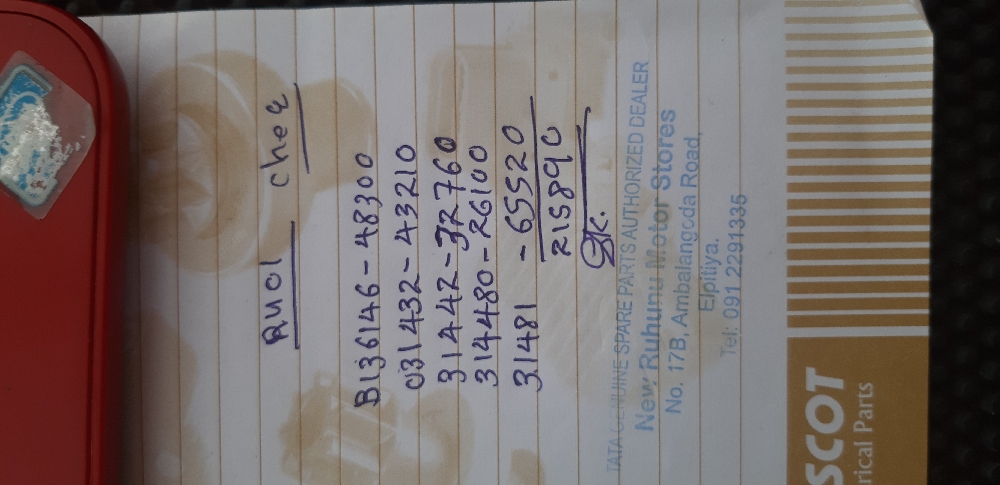 Ruol cheq
B136146 - 48300
031432 - 43210
31442 - 32760
314480 - 26100
31481 - 65520
215890
Ok.
TATA GENUINE SPARE PARTS AUTHORIZED DEALER
New Ruhunu Motor Stores
No. 17B, Ambalangoda Road,
Elpitiya.
Tel: 091 2291335
SCOT
rical Parts